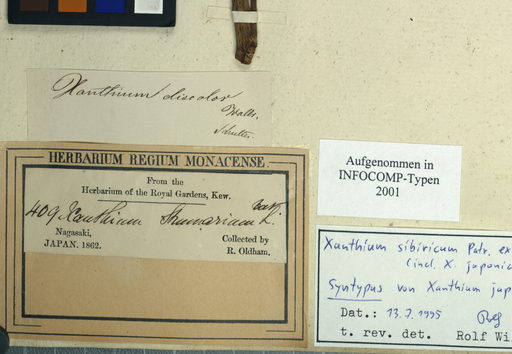 Xanthium discolor
Wallr.
Schultes.
HERBARIUM REGIUM MONACENSE.
From the
Herbarium of the Royal Gardens, Kew.
409 Xanthium Strumarium L.
Nagasaki,
JAPAN. 1862.
Collected by
R. Oldham.
Aufgenommen in
INFOCOMP-Typen
2001
Xanthium sibiricum Patr. ex
(incl. X. japonic
Syntypus von Xanthium jap
Dat.: 13.7.1995
t. rev. det. Rolf Wi